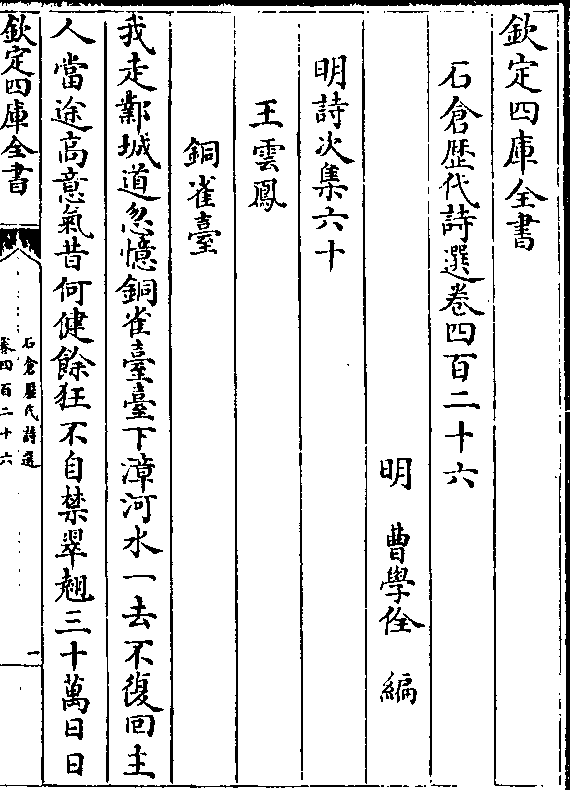 欽定四庫全書
石倉歴代詩選卷四百二十六
明 曹學佺 編
明詩次集六十
王雲鳳
銅雀臺
我走鄴城道忽憶銅雀臺臺下漳河水一去不復回主
人當途高意氣昔何健餘狂不自禁翠翹三十萬日日
欽定四庫全書
石倉歷代詩選
卷四百二十六
一